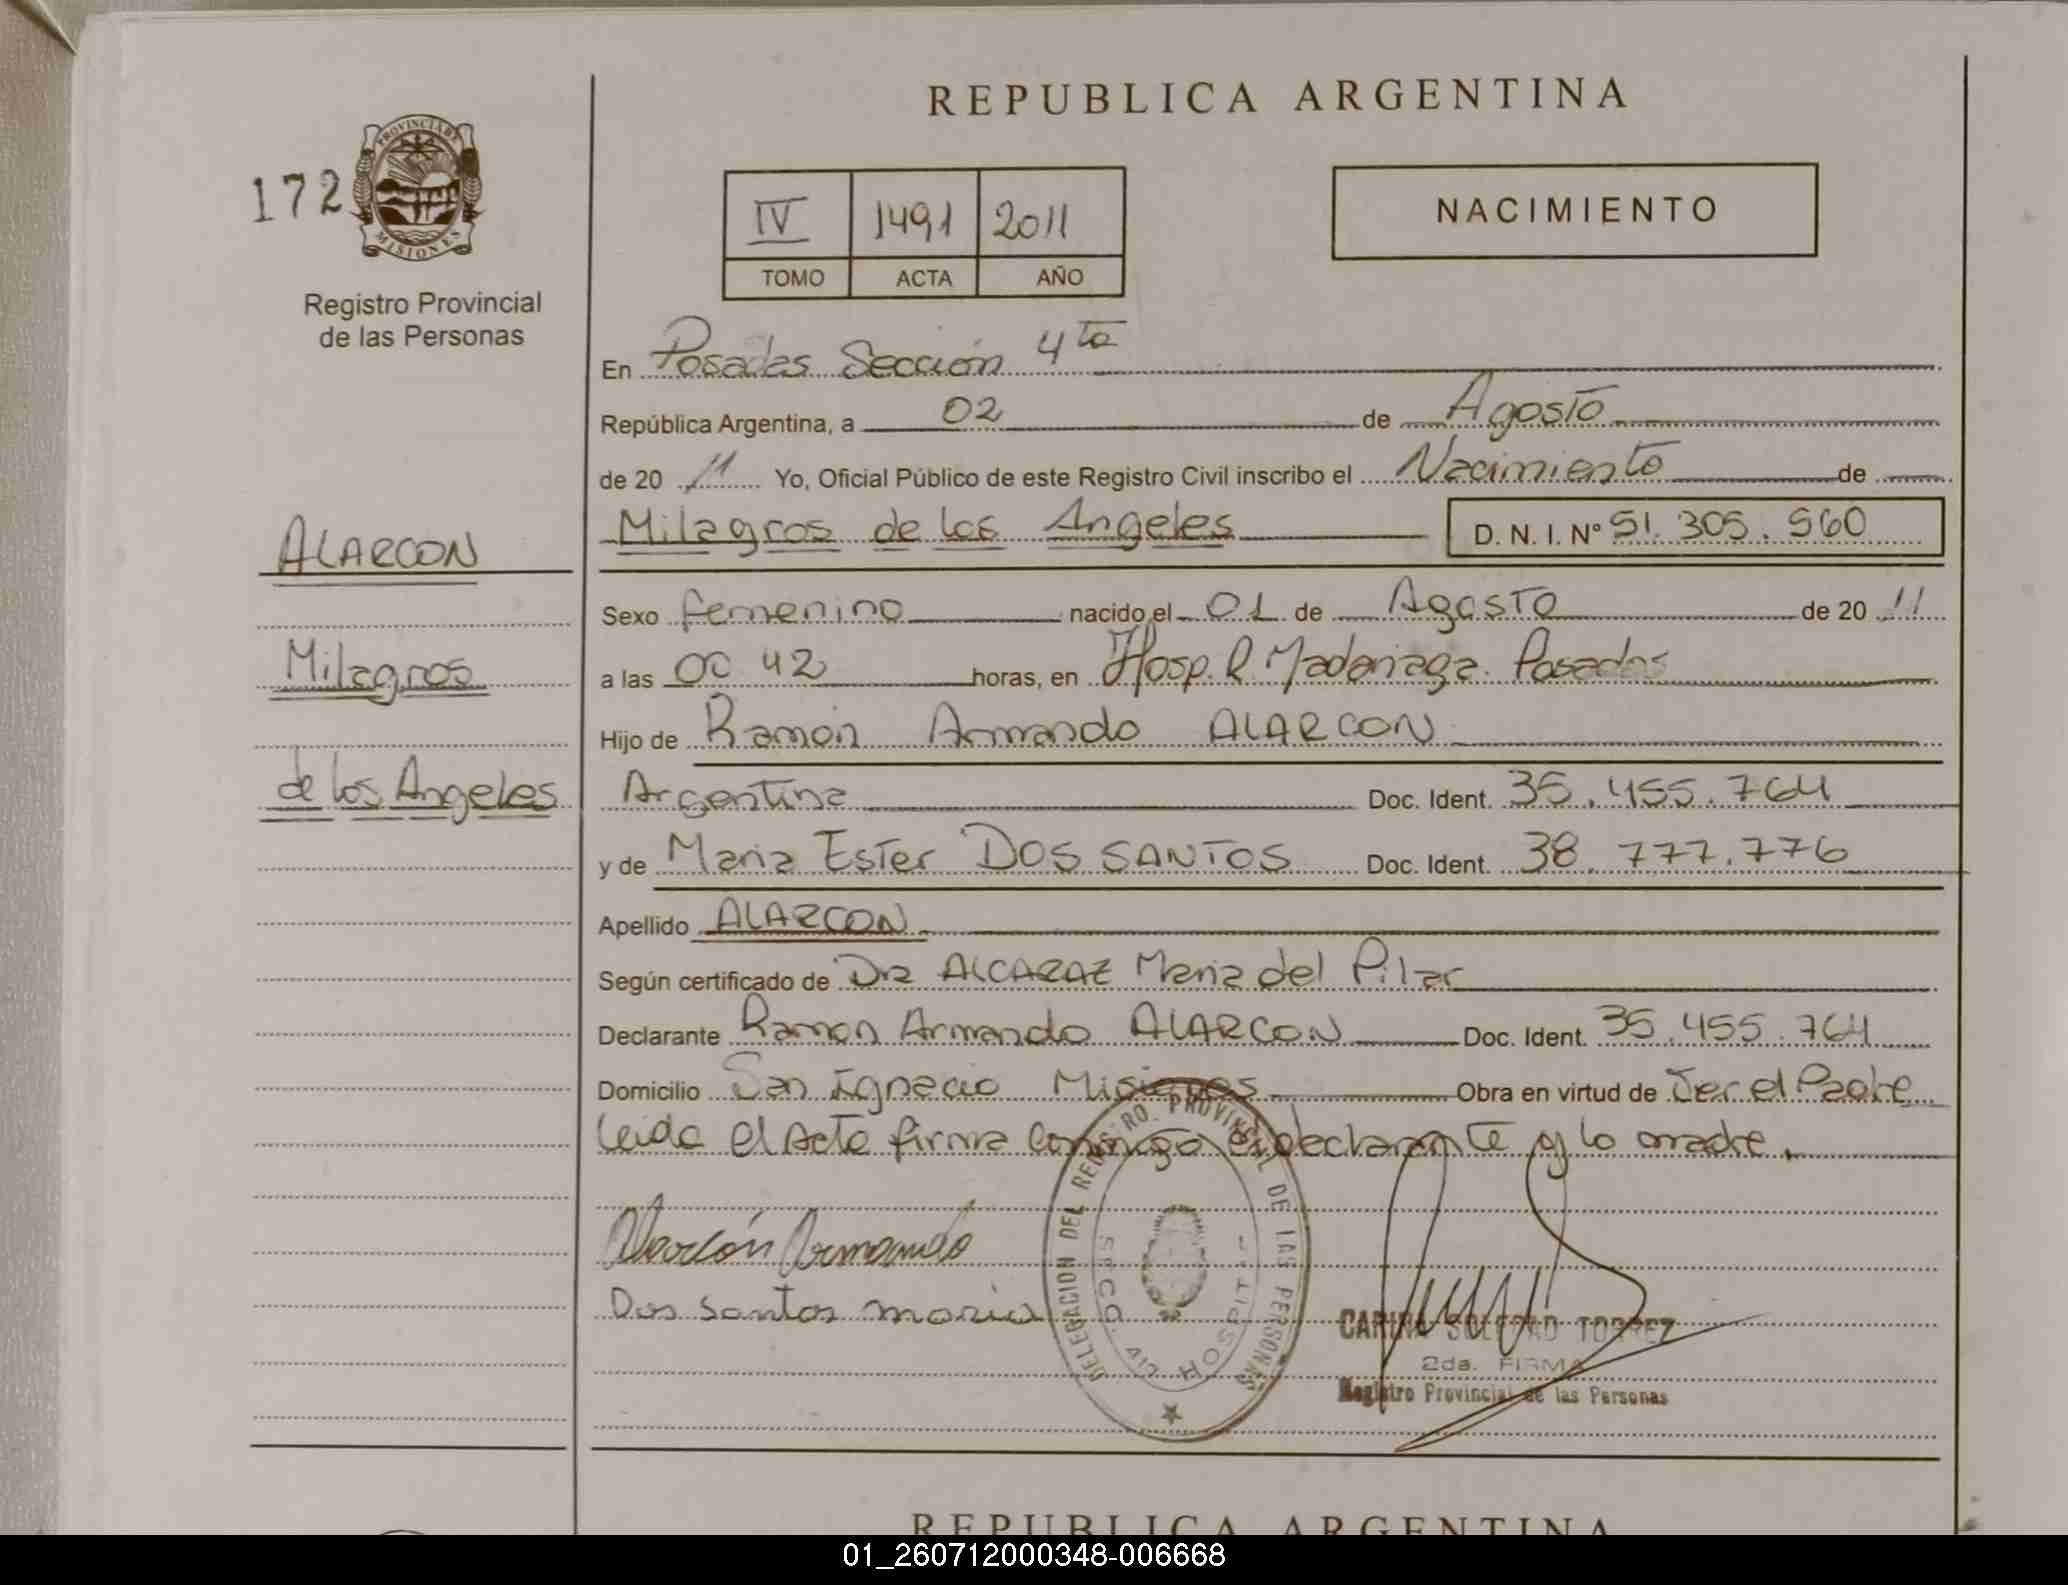 REPUBLICA ARGENTINA
172
PROVINCIA DE
MISIONES
Registro Provincial
de las Personas
IV 1491 2011
TOMO ACTA AÑO
NACIMIENTO
En Posadas Sección 4ta
República Argentina, a 02 de Agosto
de 20 11 Yo, Oficial Público de este Registro Civil inscribo el Nacimiento de
Milagros de los Angeles D. N. I. Nº 51.305.560
ALARCON
Milagros
de los Angeles
Sexo femenino nacido el 01 de Agosto de 20 11
a las 00 42 horas, en Hosp. R. Madariaga. Posadas
Hijo de Ramón Armando ALARCON
Argentina Doc. Ident. 35.455.764
y de Maria Ester DOS SANTOS Doc. Ident. 38.777.776
Apellido ALARCON
Según certificado de Dra ALCARAZ Maria del Pilar
Declarante Ramon Armando ALARCON Doc. Ident. 35.455.764
Domicilio San Ignacio Misiones Obra en virtud de Ser el Padre
leida el Acta firma conmigo el declarante y la madre.
Alarcón Armando
Dos santos maria
DELEGACION DEL REGISTRO PROVINCIAL DE LAS PERSONAS
SECC. HOSPITAL
CARINA SOLEDAD TORREZ
2da. FIRMA
Registro Provincial de las Personas
REPUBLICA ARGENTINA
01_260712000348-006668